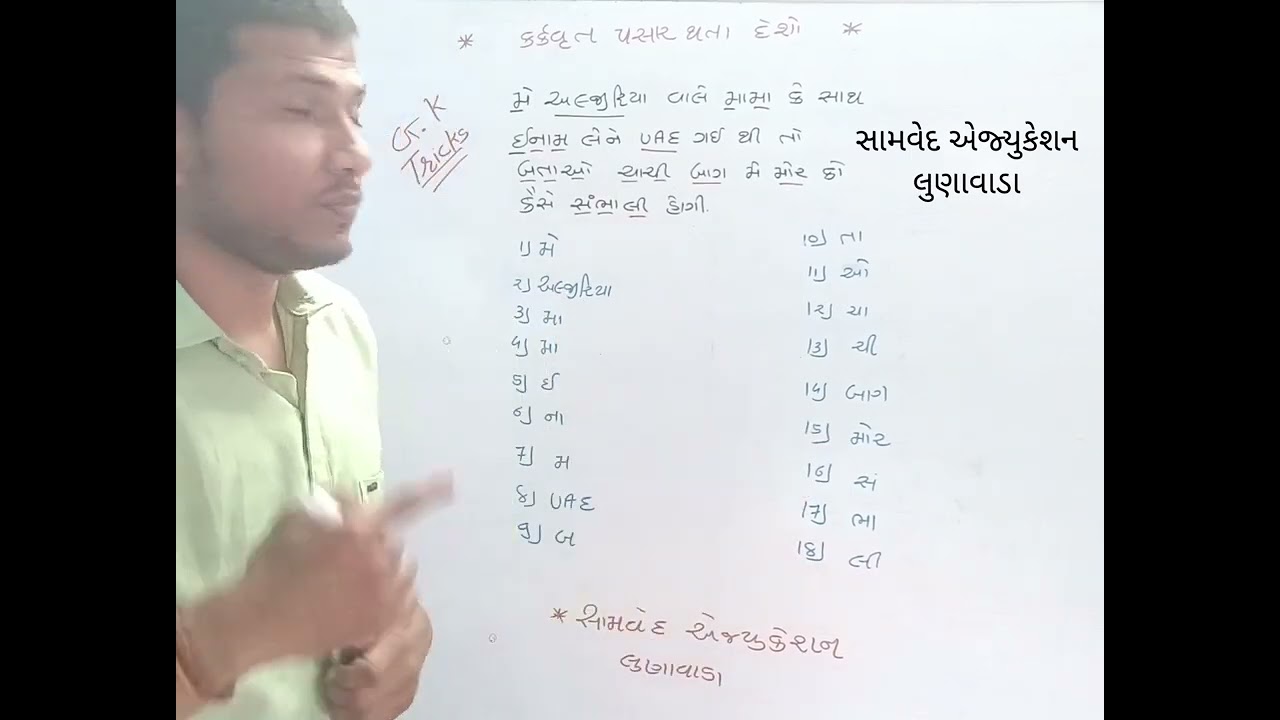 * કર્કવૃત પસાર થતા દેશો *
G.K
Tricks
મે અલ્જીરિયા વાલે મામા કે સાથ
ઈનામ લેને UAE ગઈ થી તો
બતાઓ ચાચી બાગ મે મોર કો
કૈસે સંભાલી હોગી.
સામવેદ એજ્યુકેશન
લુણાવાડા
1) મે
૨) અલ્જીરિયા
૩) મા
૪) મા
૫) ઈ
૬) ના
7) મ
૮) UAE
૯) બ
10) તા
11) ઓ
1૨) ચા
1૩) ચી
1૪) બાગ
1૫) મોર
1૬) સં
17) ભા
1૮) લી
* સામવેદ એજ્યુકેશન
લુણાવાડા